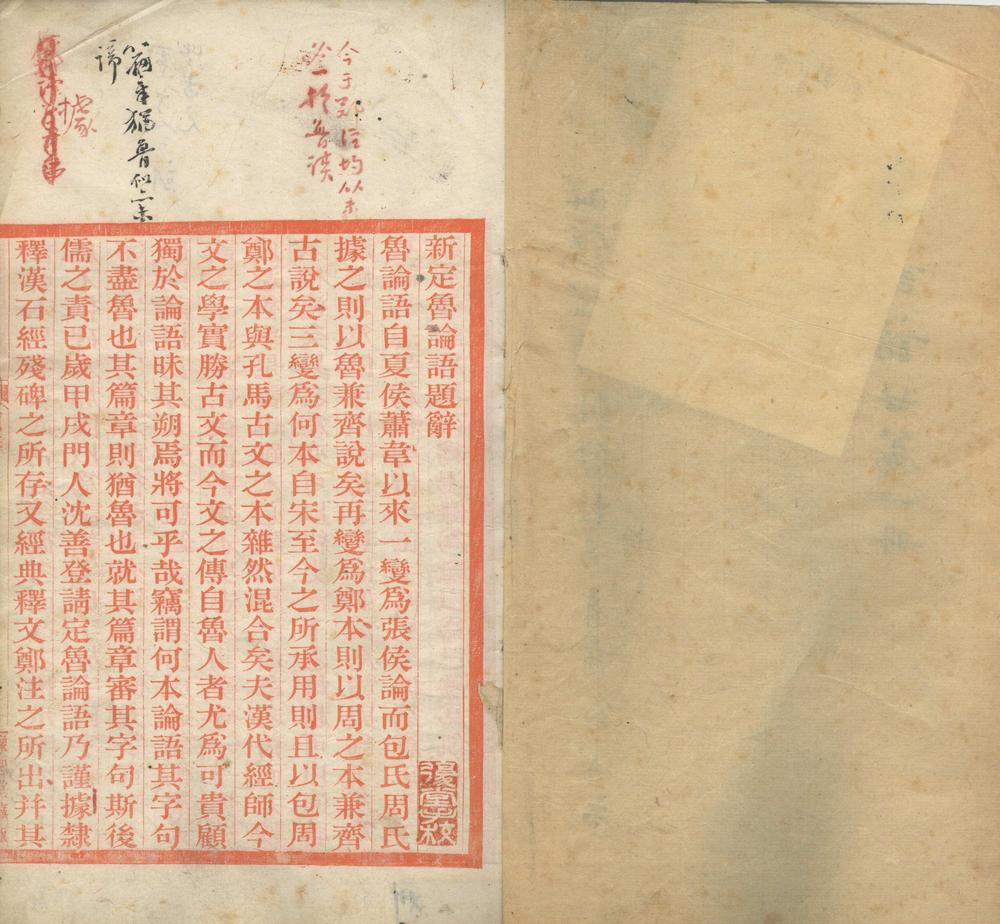 新定魯論語題辭
魯論語自夏侯蕭韋以來一變爲張侯論而包氏周氏
據之則以魯兼齊說矣再變爲鄭本則以周之本兼齊
古說矣三變爲何本自宋至今之所承用則且以包周
鄭之本與孔馬古文之本雜然混合矣夫漢代經師今
文之學實勝古文而今文之傳自魯人者尤爲可貴顧
獨於論語昧其朔焉將可乎哉竊謂何本論語其字句
不盡魯也其篇章則猶魯也就其篇章審其字句斯後
儒之責已歲甲戌門人沈善登請定魯論語乃謹據隸
釋漢石經殘碑之所存又經典釋文鄭注之所出并其
今于鄭注均以
一於魯讀
猶魯似
據